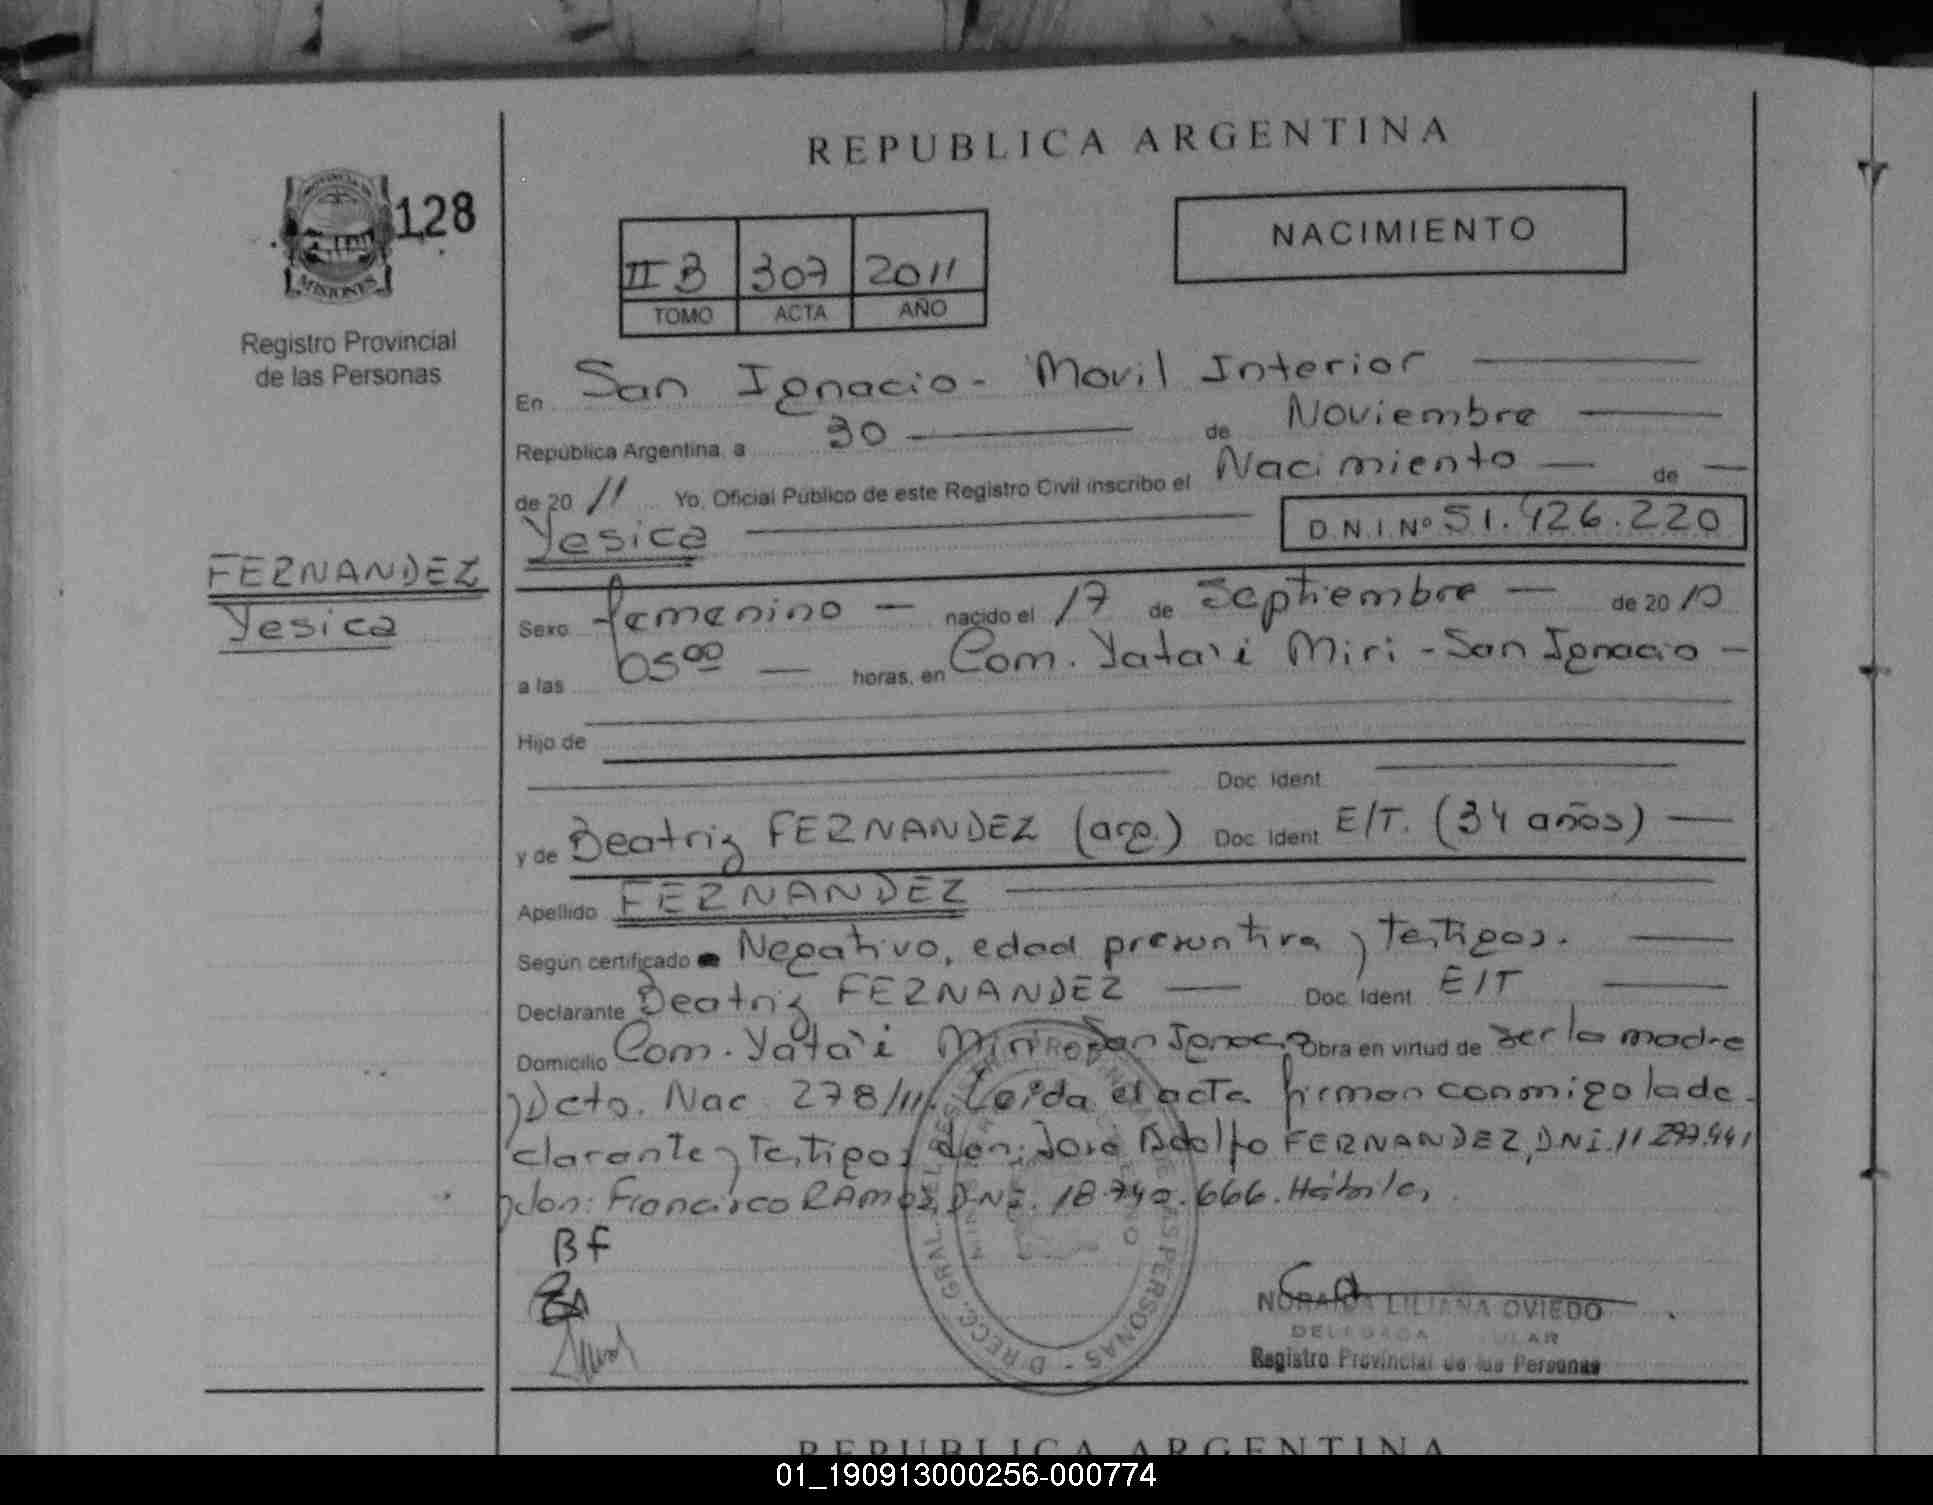 REPUBLICA ARGENTINA
128
MISIONES
Registro Provincial
de las Personas
II B 307 2011
TOMO ACTA AÑO
NACIMIENTO
En San Ignacio - Movil Interior
República Argentina, a 30 de Noviembre
de 20 11 Yo, Oficial Público de este Registro Civil inscribo el Nacimiento de
Yesica D.N.I. Nº 51.426.220
FERNANDEZ
Yesica
Sexo femenino nacido el 17 de Septiembre de 20 10
a las 05 00 horas, en Com. Yata'i Miri - San Ignacio -
Hijo de
Doc. Ident.
y de Beatriz FERNANDEZ (arg.) Doc. Ident. E/T. (34 años)
Apellido FERNANDEZ
Según certificado Negativo, edad presuntiva y testigos.
Declarante Beatriz FERNANDEZ Doc. Ident. E/T
Domicilio Com. Yata'i Miri - San Ignacio Obra en virtud de ser la madre
y Dcto. Nac. 278/11. Leída el acta firman conmigo la de-
clarante y testigos don: José Adolfo FERNANDEZ, DNI. 11
y don: Francisco RAMOS, DNI. 18.742.666. Hábiles.
BF
DIRECC. GRAL. DEL REG. PERSONAS
NORAIDA LILIANA OVIEDO
DELEGADA
Registro Provincial de las Personas
REPUBLICA ARGENTINA
01_190913000256-000774